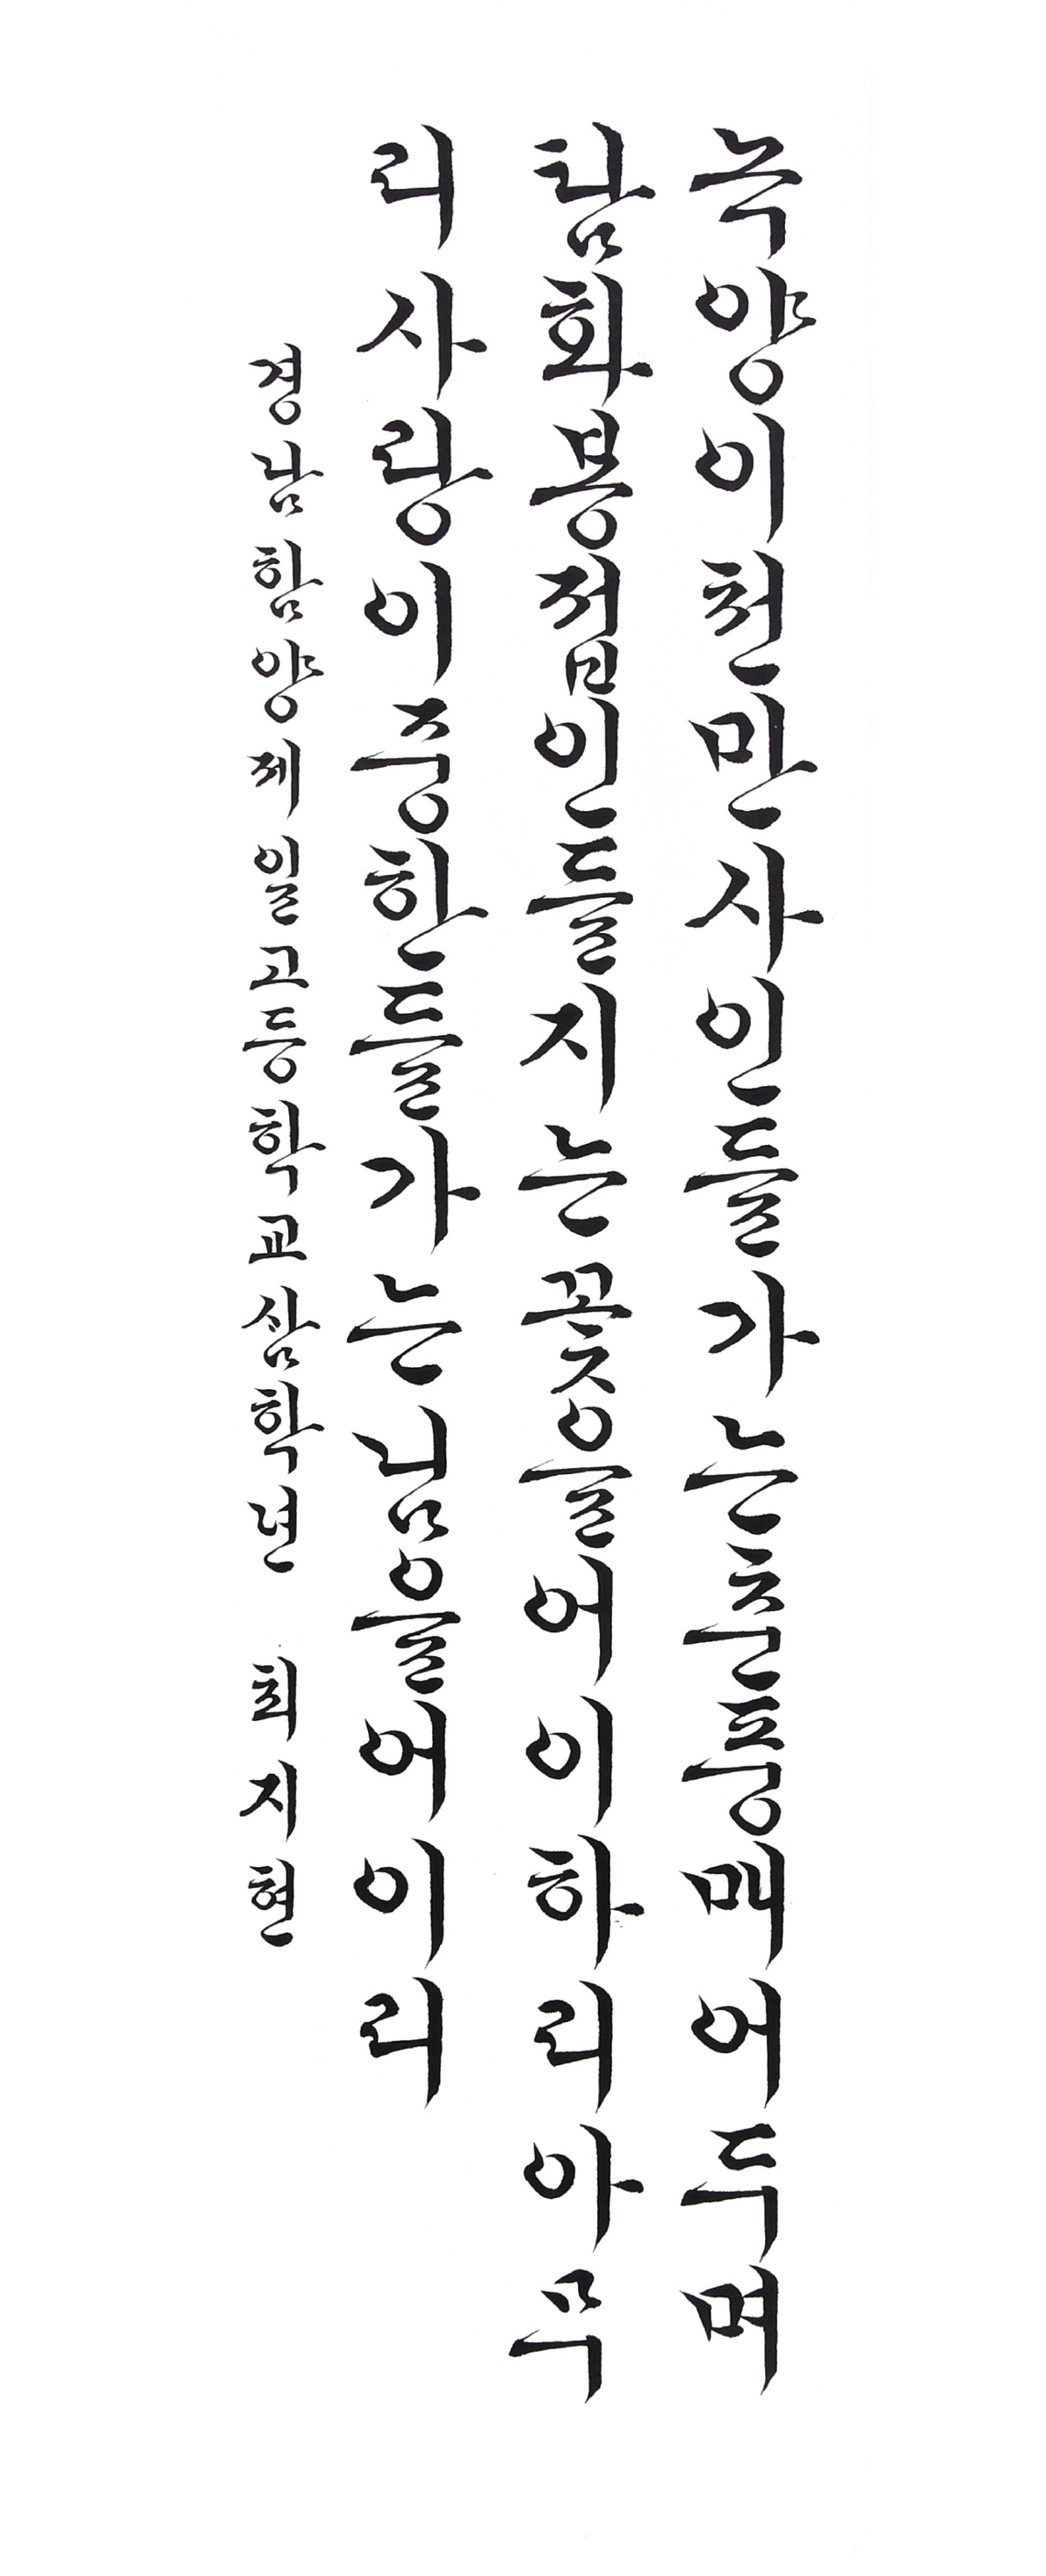 녹양이천만사인들가는춘풍매어두며
탐화봉접인들지는꽃을어이하리아무
리사랑이중한들가는님을어이리
경남함양제일고등학교삼학년 최지현